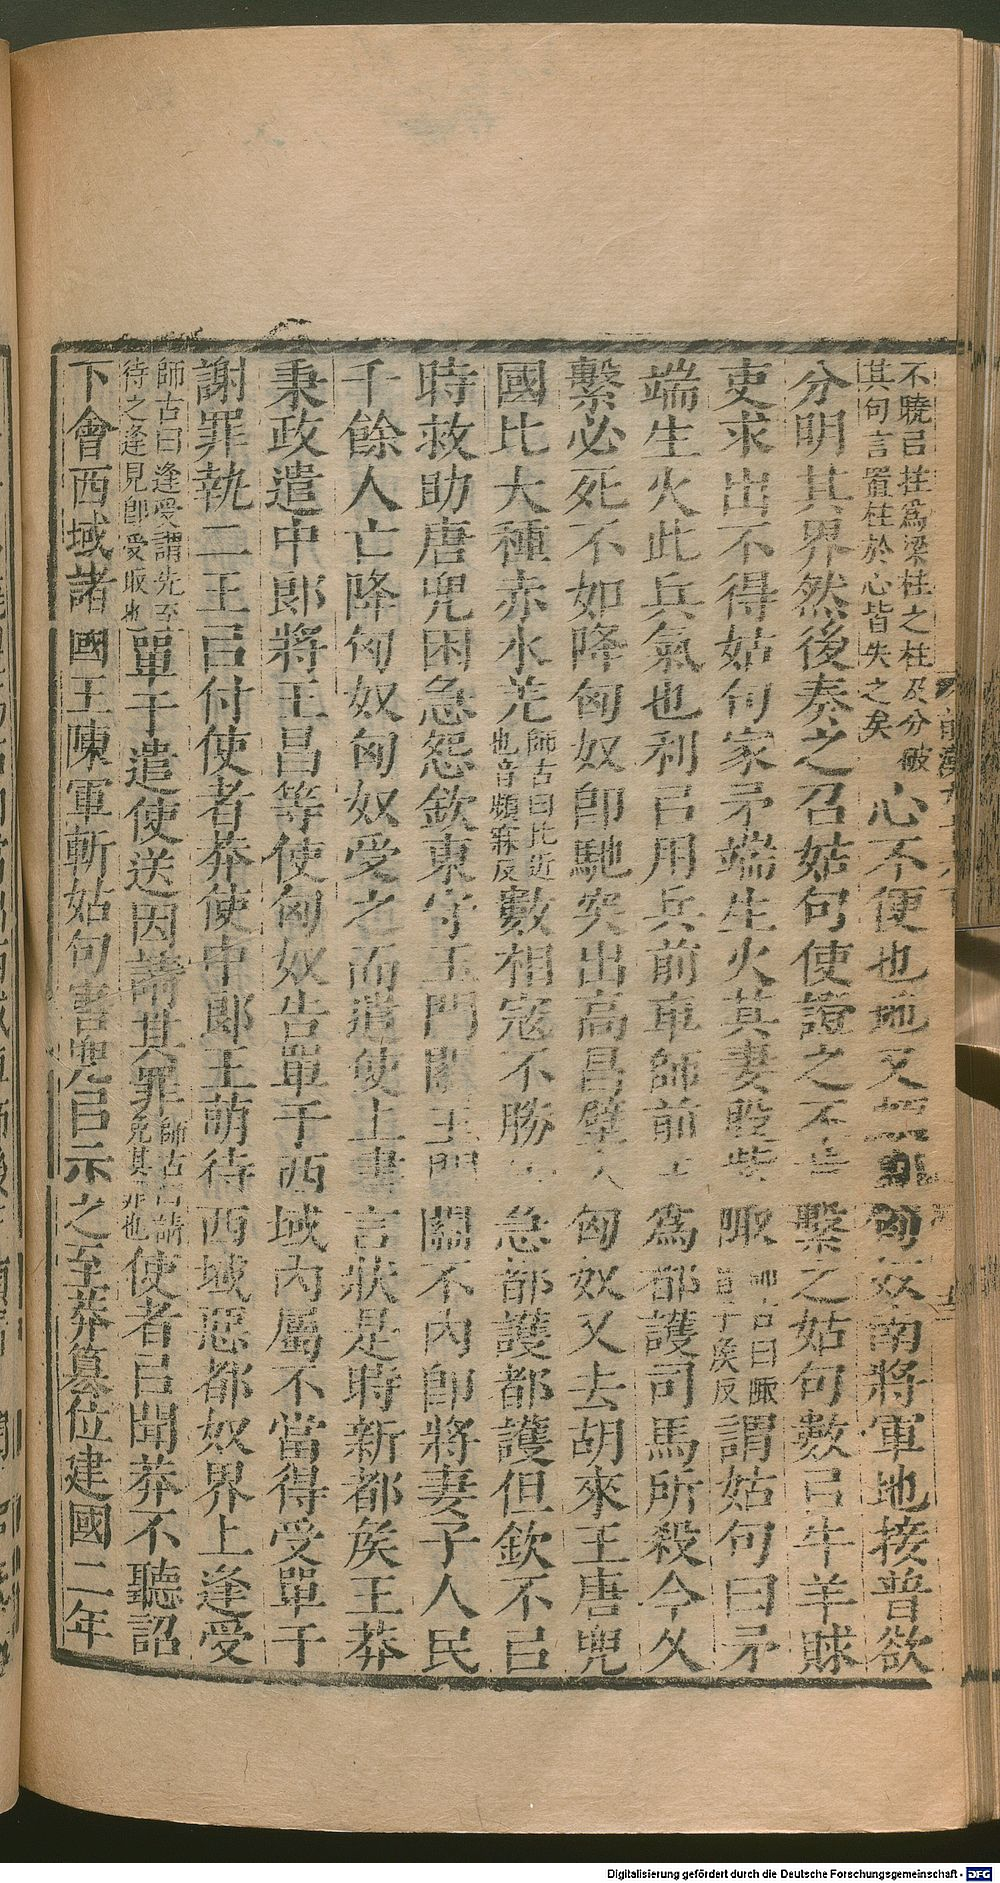 不曉㠯拄爲梁柱之柱及分破
其句言置柱於心皆失之矣
心不便也地又 匈奴南將軍地接普欲
分明其界然後奏之召姑句使證之不肯繫之姑句數㠯牛羊賕
吏求出不得姑句家矛端生火其妻股紫陬師古曰陬
音子侯反
謂姑句曰矛
端生火此兵氣也利㠯用兵前車師前王爲都護司馬所殺今久
繫必死不如降匈奴卽馳突出高昌壁入匈奴又去胡來王唐兜
國比大種赤水羌師古曰比近
也音頻寐反
數相寇不勝 急都護都護但欽不㠯
時救助唐兜困急怨欽東守玉門關玉門關不內卽將妻子人民
千餘人亡降匈奴匈奴受之而遣使上書言狀是時新都矦王莽
秉政遣中郎將王昌等使匈奴告單于西域內屬不當得受單于
謝罪執二王㠯付使者莽使中郎王萌待西域惡都奴界上逢受
師古曰逢受謂先至
待之逢見卽受取也
單于遣使送因請其罪師古曰請
免其罪也
使者㠯聞莽不聽詔
下會西域諸國王陳軍斬姑句害兜㠯示之至莽篡位建國二年
Digitalisierung gefördert durch die Deutsche Forschungsgemeinschaft - DFG